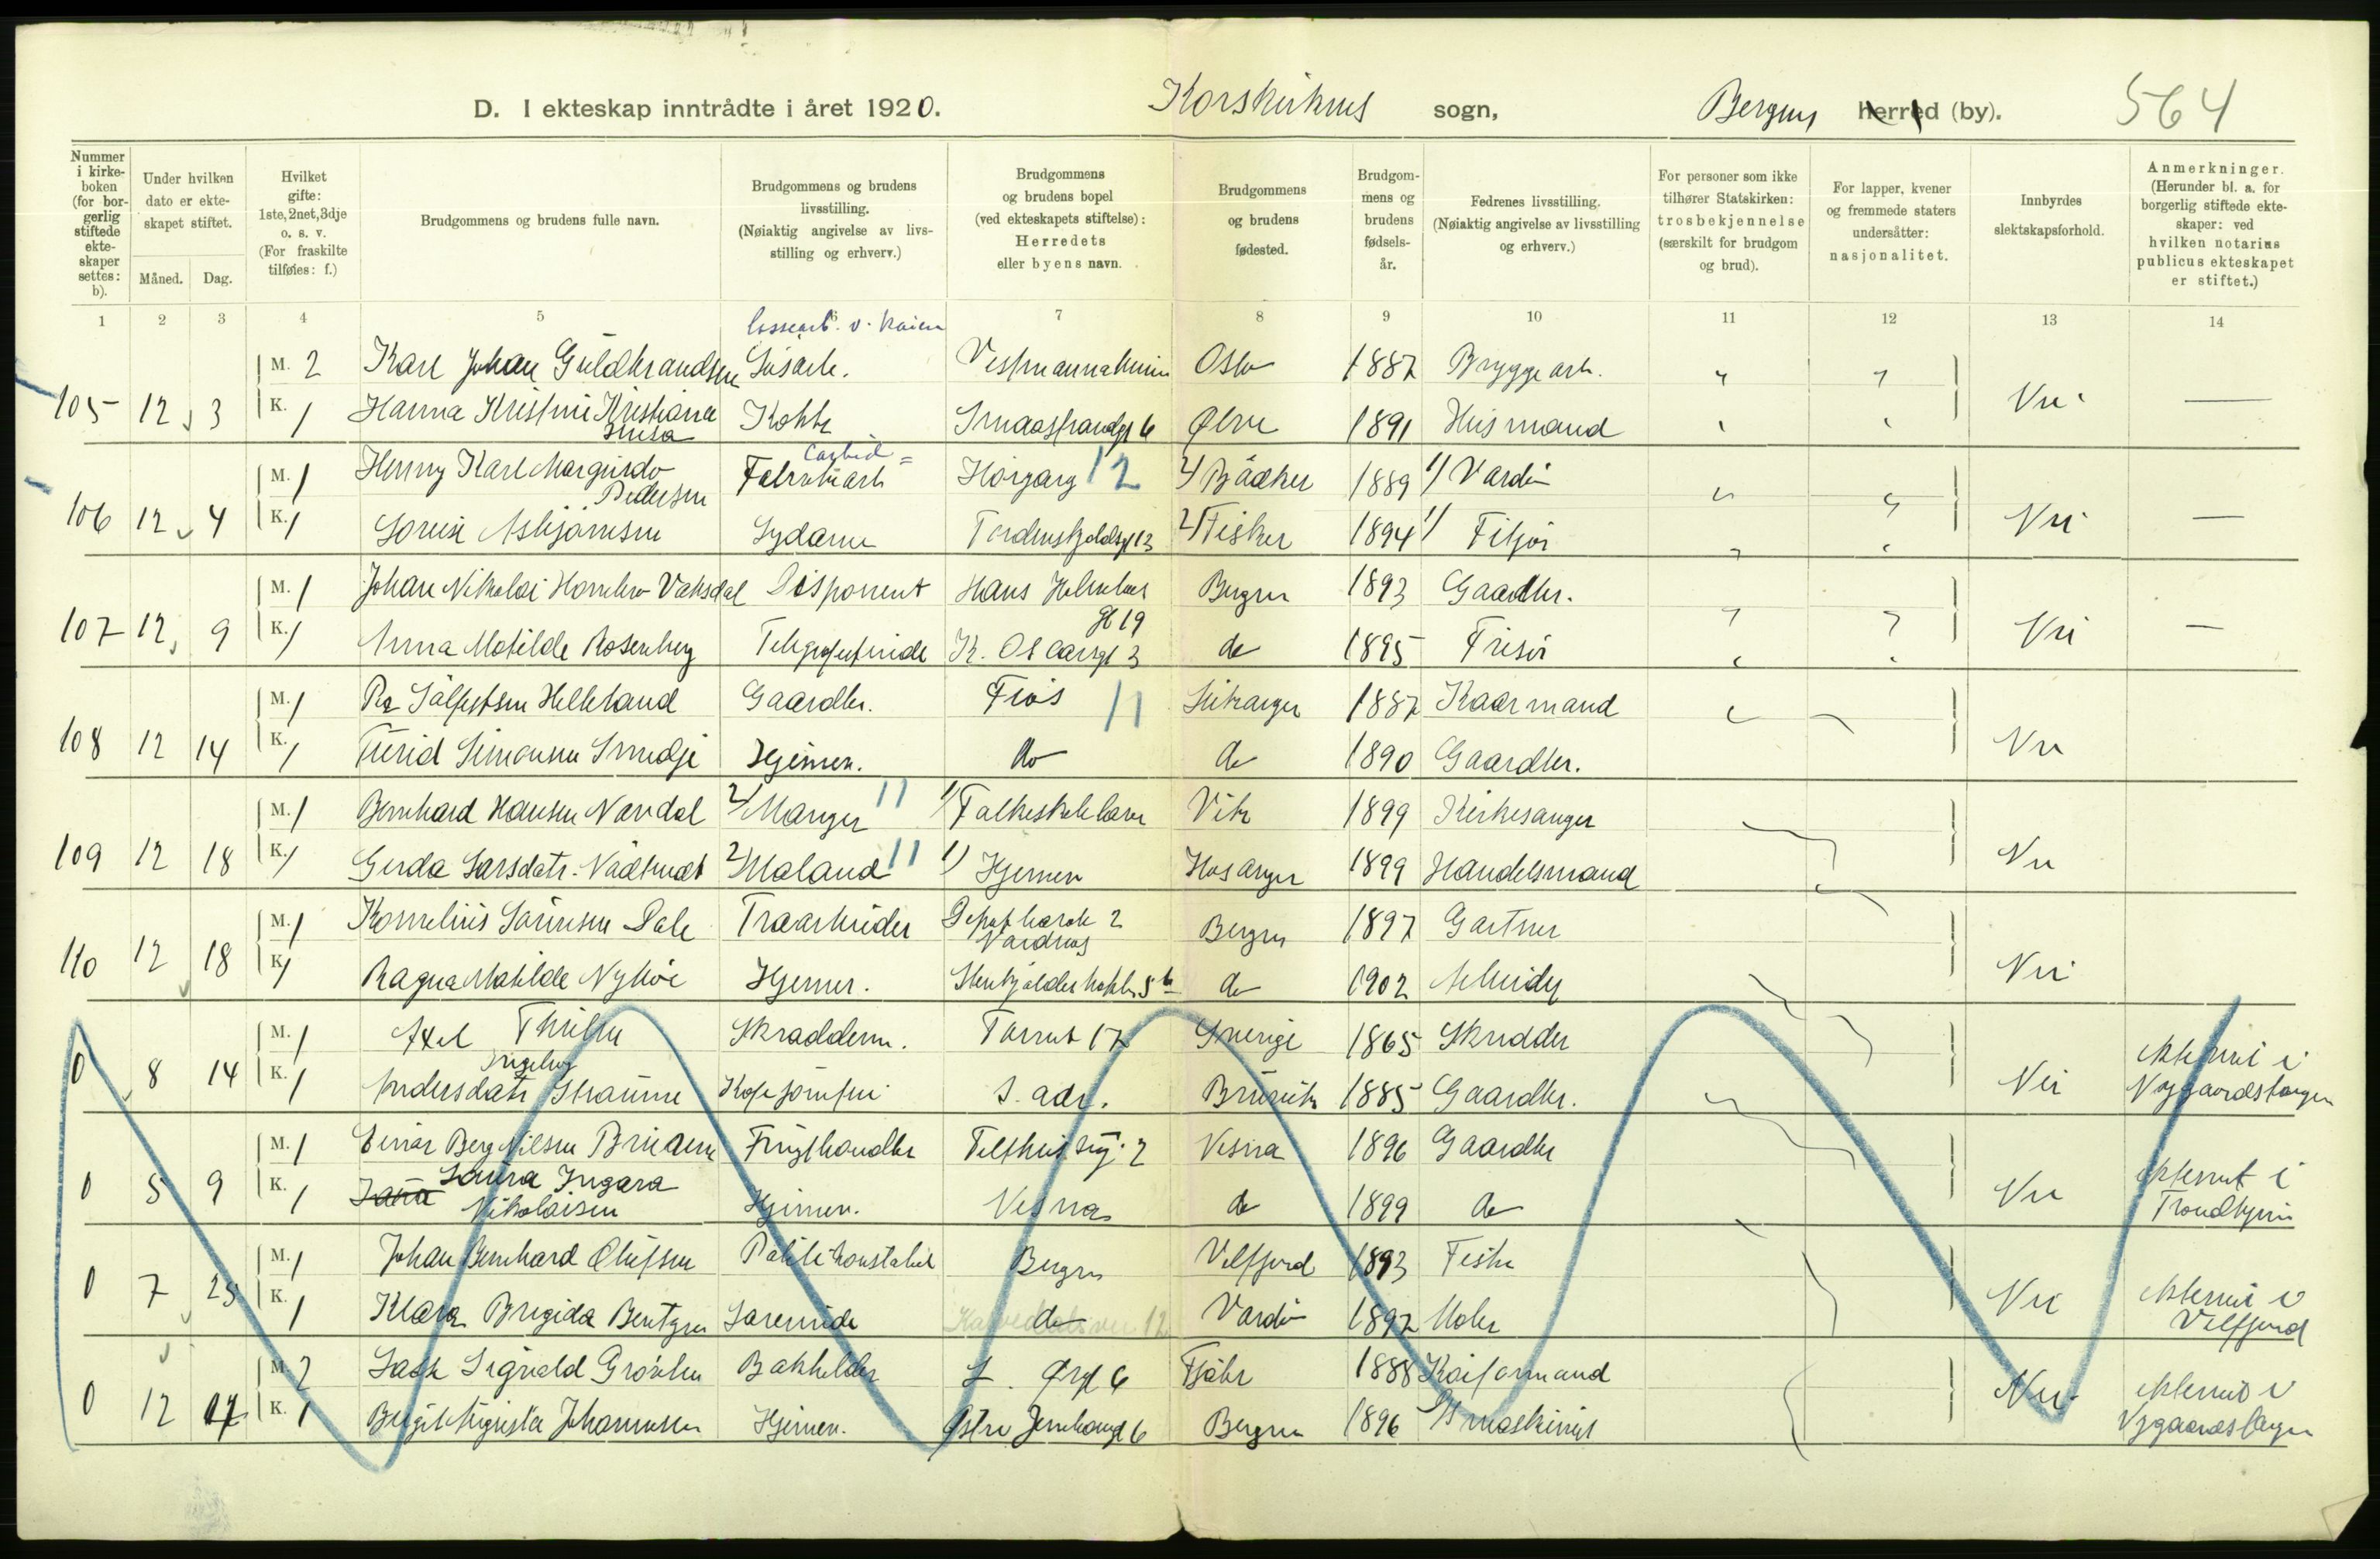 D. I ekteskap inntrådte i året 1920. Korskirkens sogn, Bergens herred (by). 564
Nummer i kirkeboken (for borgerlig stiftede ekteskaper settes: b).
Under hvilken dato er ekteskapet stiftet.
Måned. Dag.
Hvilket gifte: 1ste, 2net, 3dje o. s. v. (For fraskilte tilføies: f.)
Brudgommens og brudens fulle navn.
Brudgommens og brudens livsstilling. (Nøiaktig angivelse av livsstilling og erhverv.)
Brudgommens og brudens bopel (ved ekteskapets stiftelse): Herredets eller byens navn.
Brudgommens og brudens fødested.
Brudgommens og brudens fødselsår.
Fedrenes livsstilling. (Nøiaktig angivelse av livsstilling og erhverv.)
For personer som ikke tilhører Statskirken: trosbekjennelse (særskilt for brudgom og brud).
For lapper, kvener og fremmede staters undersåtter: nasjonalitet.
Innbyrdes slektskapsforhold.
Anmerkninger. (Herunder bl. a. for borgerlig stiftede ekteskaper: ved hvilken notarius publicus ekteskapet er stiftet.)
1 2 3 4 5 6 7 8 9 10 11 12 13 14
lossearb. v. kaien
M. 2 Karl Johan Guldbrandsen Løsarb. Oslo 1887 Bryggearb. " "
105 12 3 K. 1 Hanna Kristine Kristiana Kokke Smaastrandgt 6 Ølve 1891 Husmand Nei —
Carbid =
M. 1 Henny Karl Margindo Pedersen Fabrikarb Horgang 12 2) Bødker 1889 1) Vardø " "
106 12 4 K. 1 Lovise Asbjørnsen Sydame Tordenskjoldsgt 13 2) Fisker 1894 1) Fitjar Nei —
M. 1 Johan Nikolai Vaksdal Disponent Hans Holmboes gt 19 Bergen 1893 Gaardbr. " "
107 12 9 K. 1 Anna Matilde Rosenberg Telegrafistinde K. Oscarsgt 3 do 1895 Frisør Nei —
M. 1 Per Sjalfestsen Helleland Gaardbr. Fios 11 1887 Kaarmand
108 12 14 K. 1 Turid Simonsen Hjemmev. do do 1890 Gaardbr. Nei
M. 1 Bernhard Hansen Nævdal 2) Manger 11 1) Falkeskolelærer Vik 1899 Kirkesanger
109 12 18 K. 1 Gerda Larsdatr. 2) Maland 11 1) Hjemmev Hosanger 1899 Handelsmand Nei
M. 1 Kornelius Dale Traarbeider 2 Vardnes Bergen 1897 Gartner
110 12 18 K. 1 Ragna Matilde Nykøe Hjemmev. Stenkjelderbakken 5 b do 1902 Arbeider Nei
M. 1 Axel Thulin Skradderm. Torvet 17 Sverige 1865 Skrædder
Ingeborg
0 8 14 K. 1 Andersdatr Straume Kafejomfru S. adr. Bruvik 1885 Gaardbr. Nei Nygaardskirken
M. 1 Einar Berg Nilsen Frugthandler 2 Vesna 1896 Gaardbr
0 5 9 K. 1 Laura Ingara Nikolaisen Hjemmev. Vesna do 1899 do Nei Ektev. i Trondhjem
M. 1 Johan Bernhard Olufsen Politikonstabel Bergen Velfjord 1893 Fisker
0 7 25 K. 1 Klara Brigida Bentzen Lærerinde do Vardø 1892 Maler Nei Velfjord
M. 2 Sigvald Bakkelder L. Øvregt 6 1888 Kaiformand
0 12 17 K. 1 Birgit Augusta Johannessen Hjemmev. 6 Bergen 1896 Nei